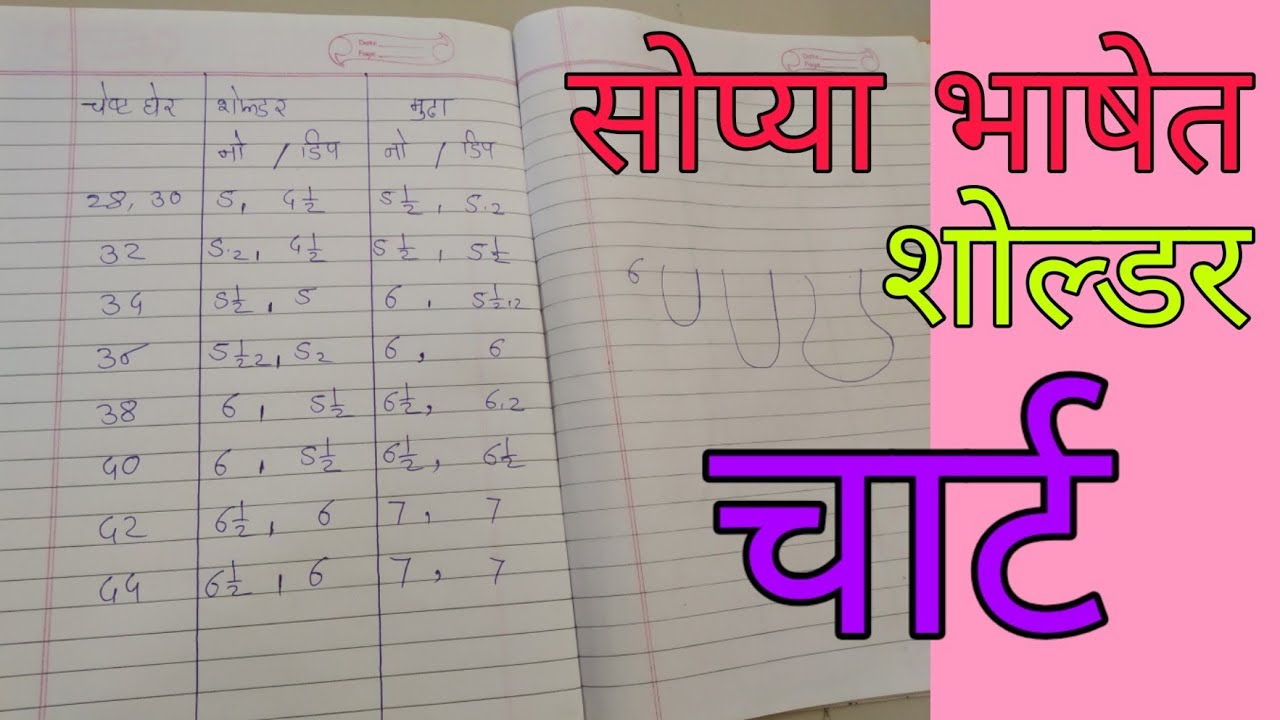 सोप्या भाषेत
शोल्डर
चार्ट
Date
Page
Date
Page
चेष्ट घेर शोल्डर मुढा
नॉ / डिप नॉ / डिप
28, 30 5, 4 1/2 5 1/2, 5.2
32 5.2, 4 1/2 5 1/2, 5 1/2
34 5 1/2, 5 6, 5 1/2.2
36 5 1/2 2, 5 2 6, 6
38 6, 5 1/2 6 1/2, 6.2
40 6, 5 1/2 6 1/2, 6 1/2
42 6 1/2, 6 7, 7
44 6 1/2, 6 7, 7
6